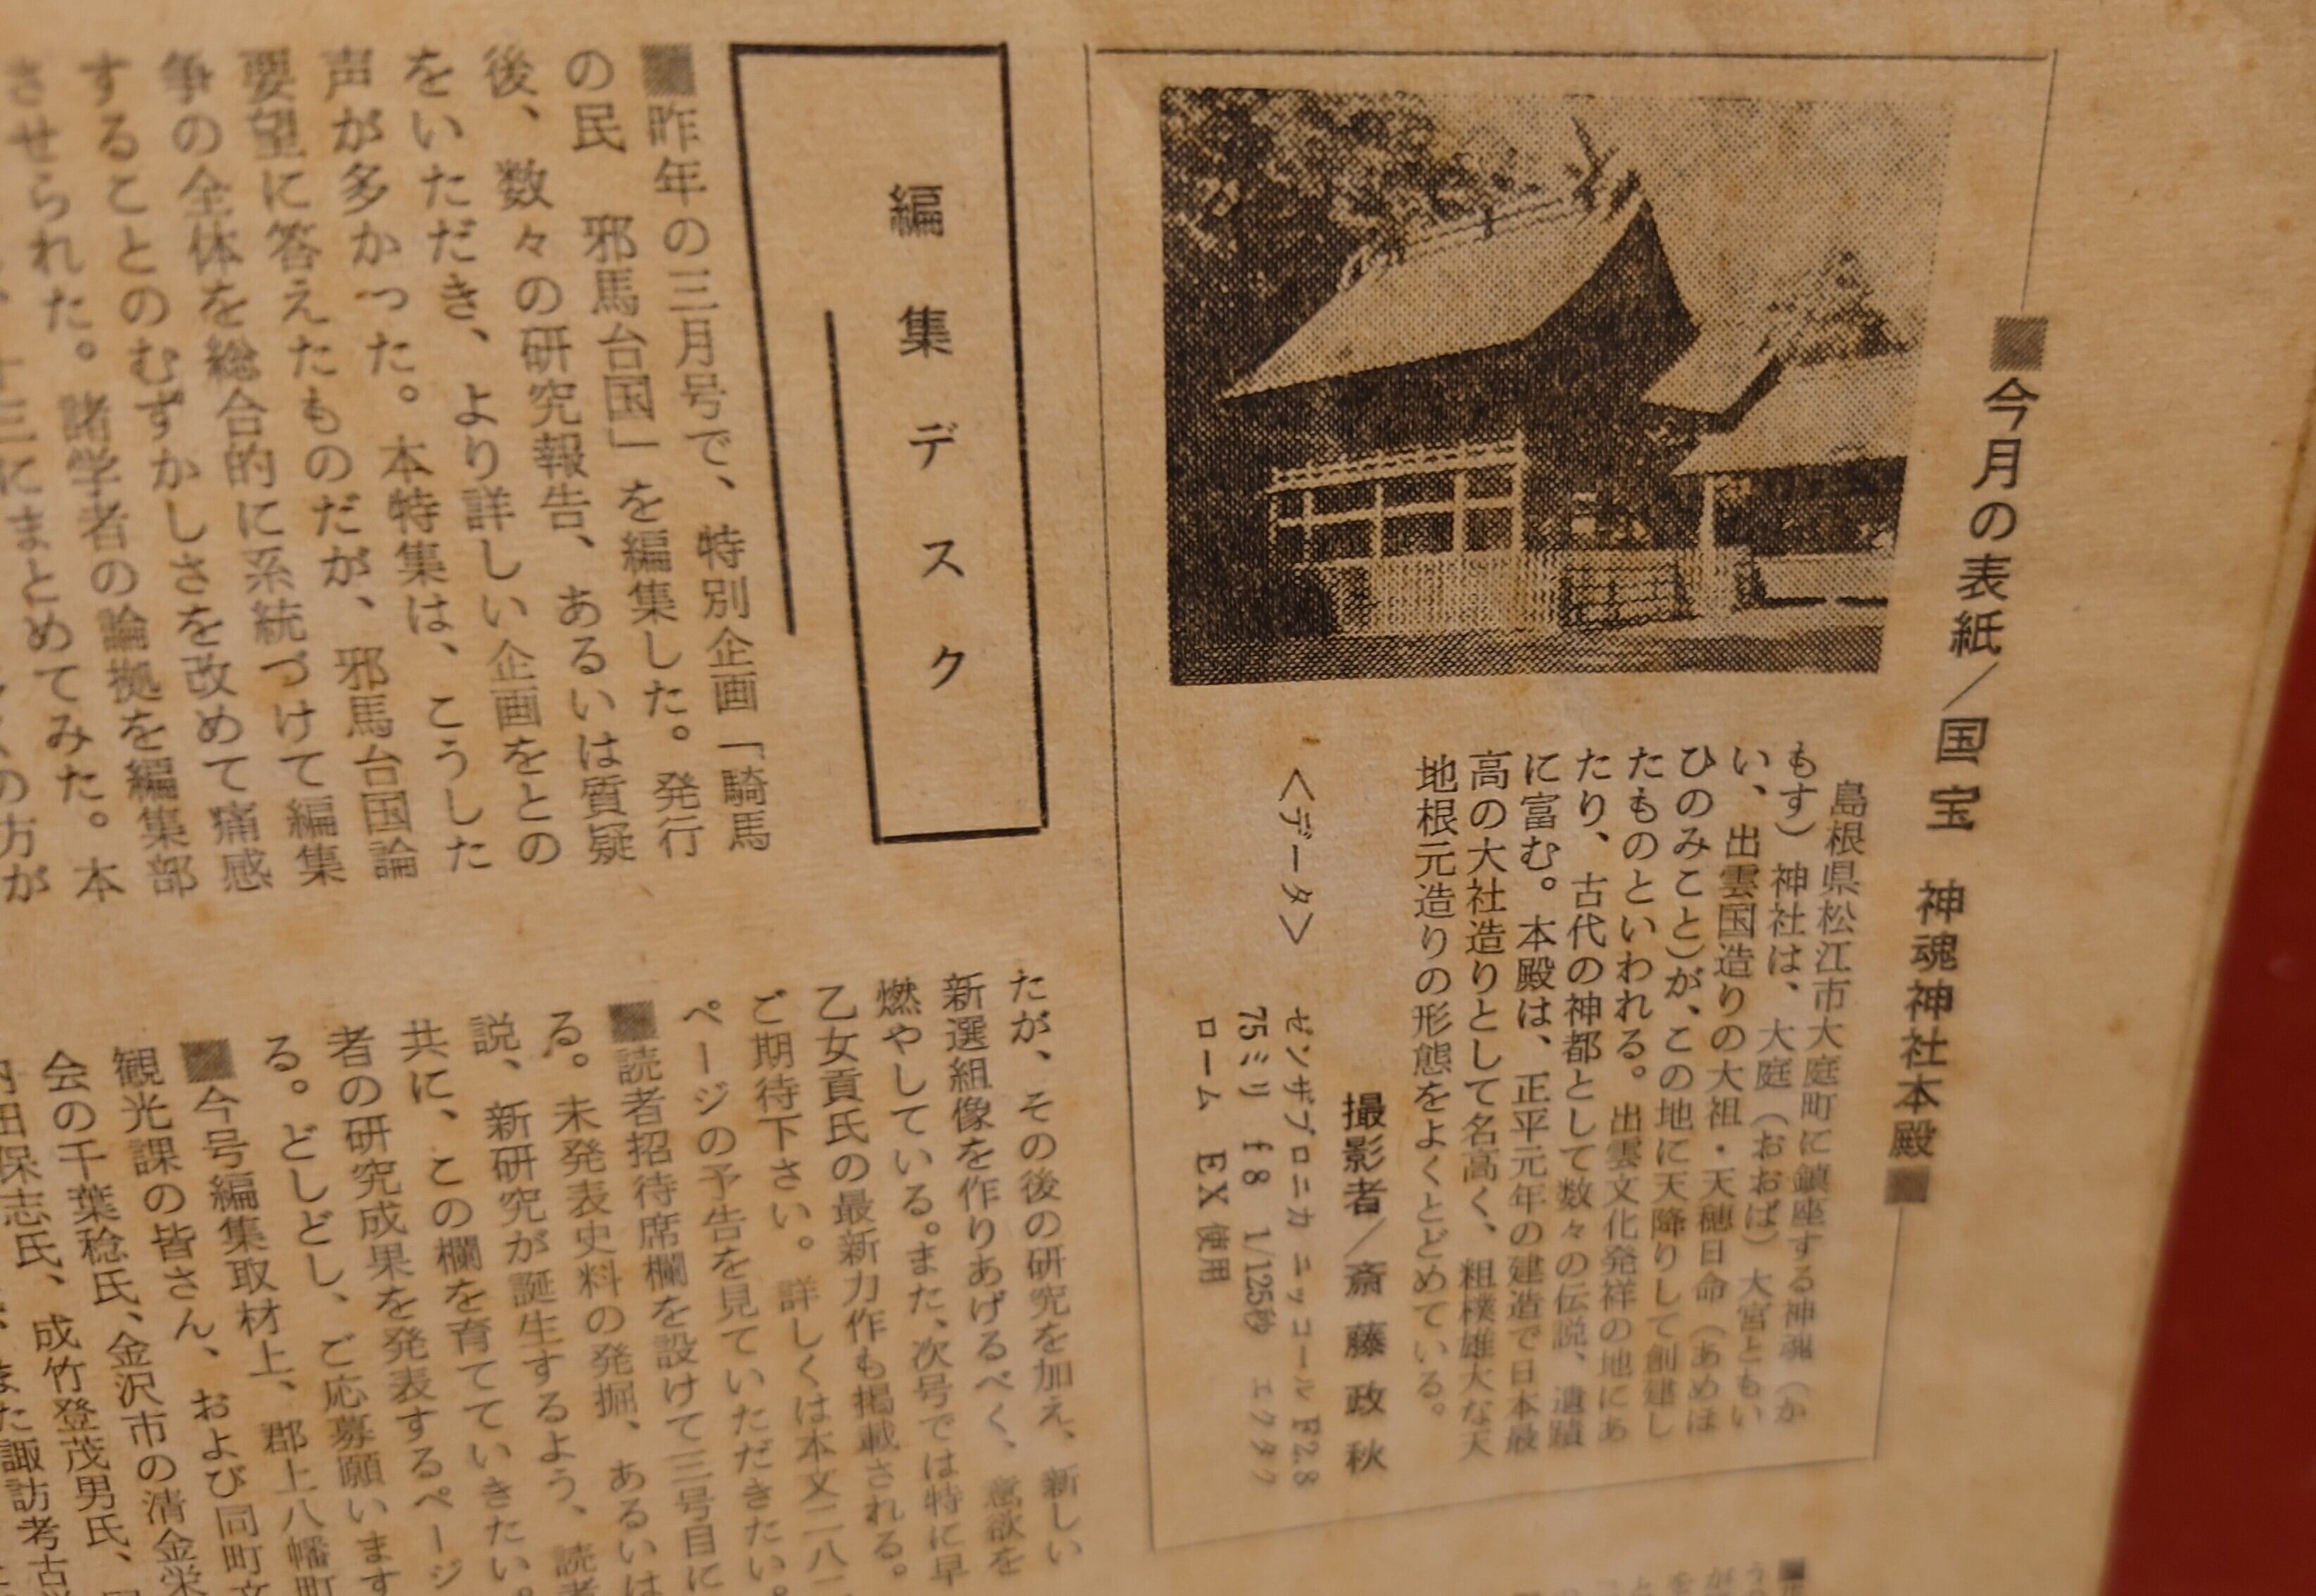 ■今月の表紙／国宝　神魂神社本殿■
島根県松江市大庭町に鎮座する神魂（か
もす）神社は、大庭（おおば）大宮ともい
い、出雲国造りの大祖・天穂日命（あめほ
ひのみこと）が、この地に天降りして創建し
たものといわれる。出雲文化発祥の地にあ
たり、古代の神都として数々の伝説、遺蹟
に富む。本殿は、正平元年の建造で日本最
高の大社造りとして名高く、粗樸雄大な天
地根元造りの形態をよくとどめている。
撮影者／斎藤政秋
＜データ＞
ゼンザブロニカ ニッコールF2.8
75ミリ f8 1/125秒 エクタク
ローム EX使用
編集デスク
■昨年の三月号で、特別企画「騎馬
の民　邪馬台国」を編集した。発行
後、数々の研究報告、あるいは質疑
をいただき、より詳しい企画をとの
声が多かった。本特集は、こうした
要望に答えたものだが、邪馬台国論
争の全体を総合的に系統づけて編集
することのむずかしさを改めて痛感
させられた。諸学者の論拠を編集部
にまとめてみた。本
の方が
たが、その後の研究を加え、新しい
新選組像を作りあげるべく、意欲を
燃やしている。また、次号では特に早
乙女貢氏の最新力作も掲載される。
ご期待下さい。詳しくは本文二八
ページの予告を見ていただきたい。
■読者招待席欄を設けて三号目に
る。未発表史料の発掘、あるいは
説、新研究が誕生するよう、読者
共に、この欄を育てていきたい。
者の研究成果を発表するページ
る。どしどし、ご応募願います
■今号編集取材上、郡上八幡町
観光課の皆さん、および同町
会の千葉稔氏、金沢市の清金栄
田保志氏、成竹登茂男氏、
また諏訪考古